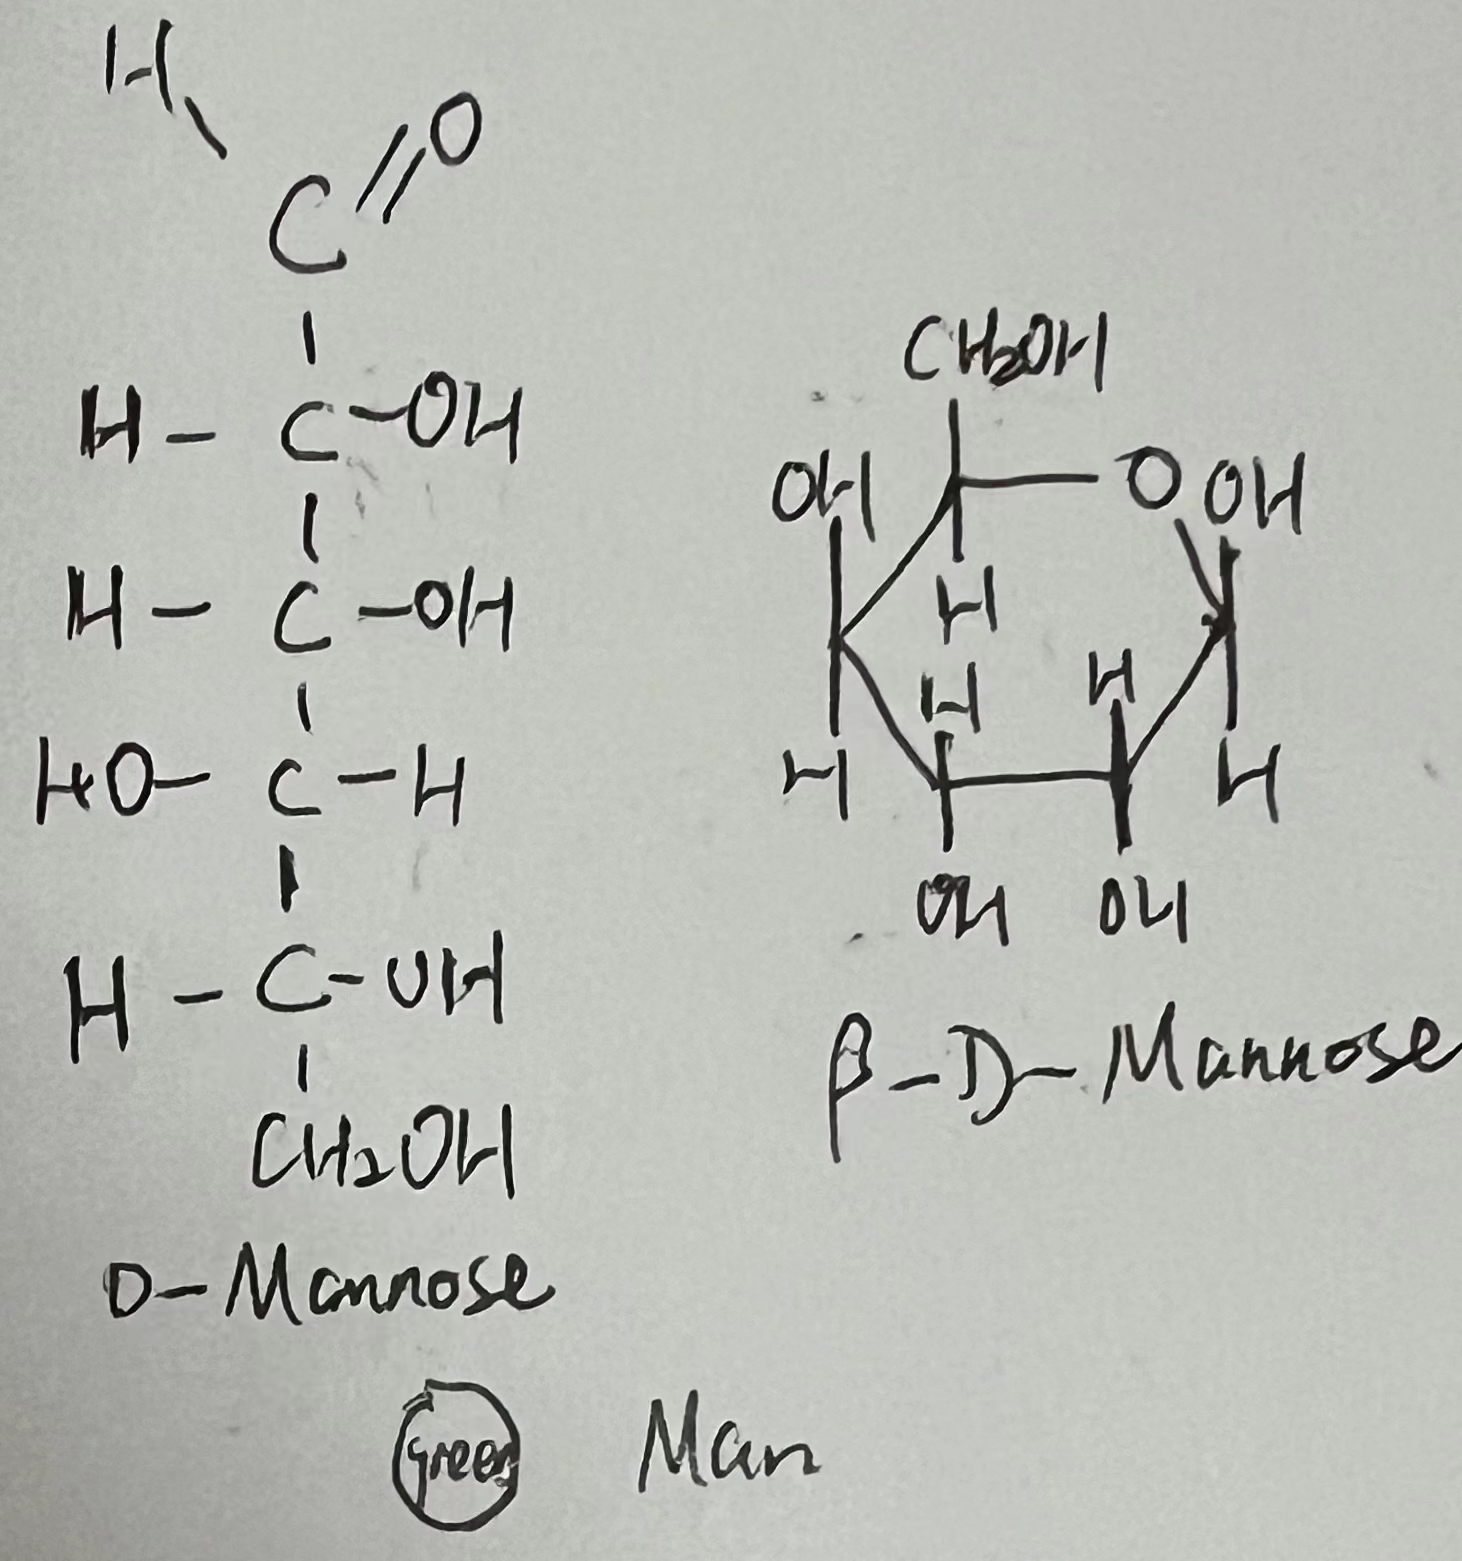 H
O
C
H - C - OH
H - C - OH
HO - C - H
H - C - OH
CH₂OH
D - Mannose
CH₂OH
OH O OH
H
H H
H H
OH OH
β - D - Mannose
green Man